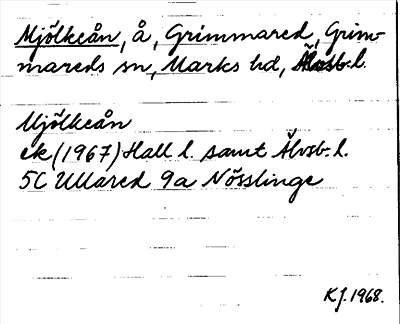 Mjölkeån, å, Grimmared, Grim-
mareds sn, Marks hd, Älvsb. l.
Mjölkeån
ek (1967) Hall l. samt Älvsb. l.
5C Ullared 9a Nösslinge
K.J. 1968.